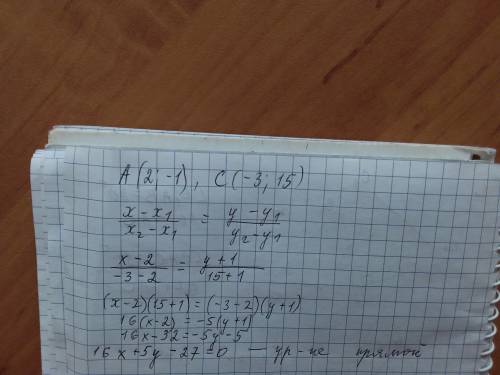 A(2; -1), C(-3; 15)
x - x₁ / x₂ - x₁ = y - y₁ / y₂ - y₁
x - 2 / -3 - 2 = y + 1 / 15 + 1
(x - 2)(15 + 1) = (-3 - 2)(y + 1)
16(x - 2) = -5(y + 1)
16x - 32 = -5y - 5
16x + 5y - 27 = 0 — ур-не прямой